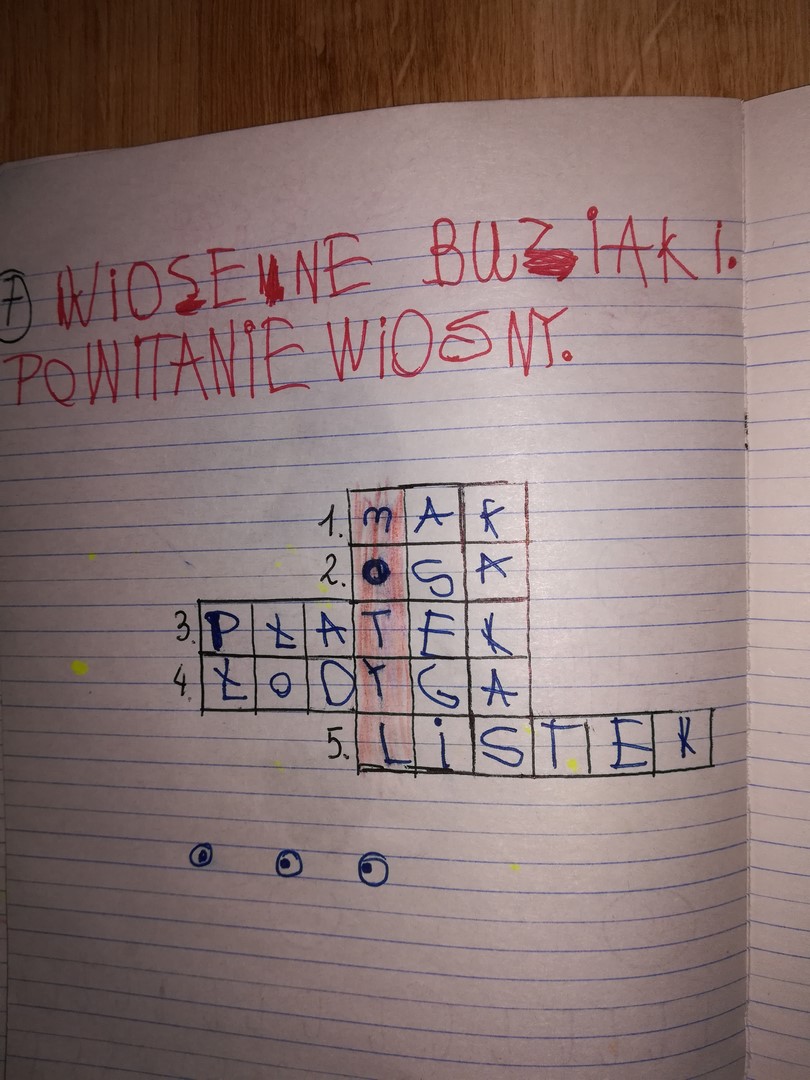 7 WIOSENNE BUZIAKI.
POWITANIE WIOSNY.
1. mAK
2. OSA
3. PŁATEK
4. ŁODYGA
5. LiSTEK